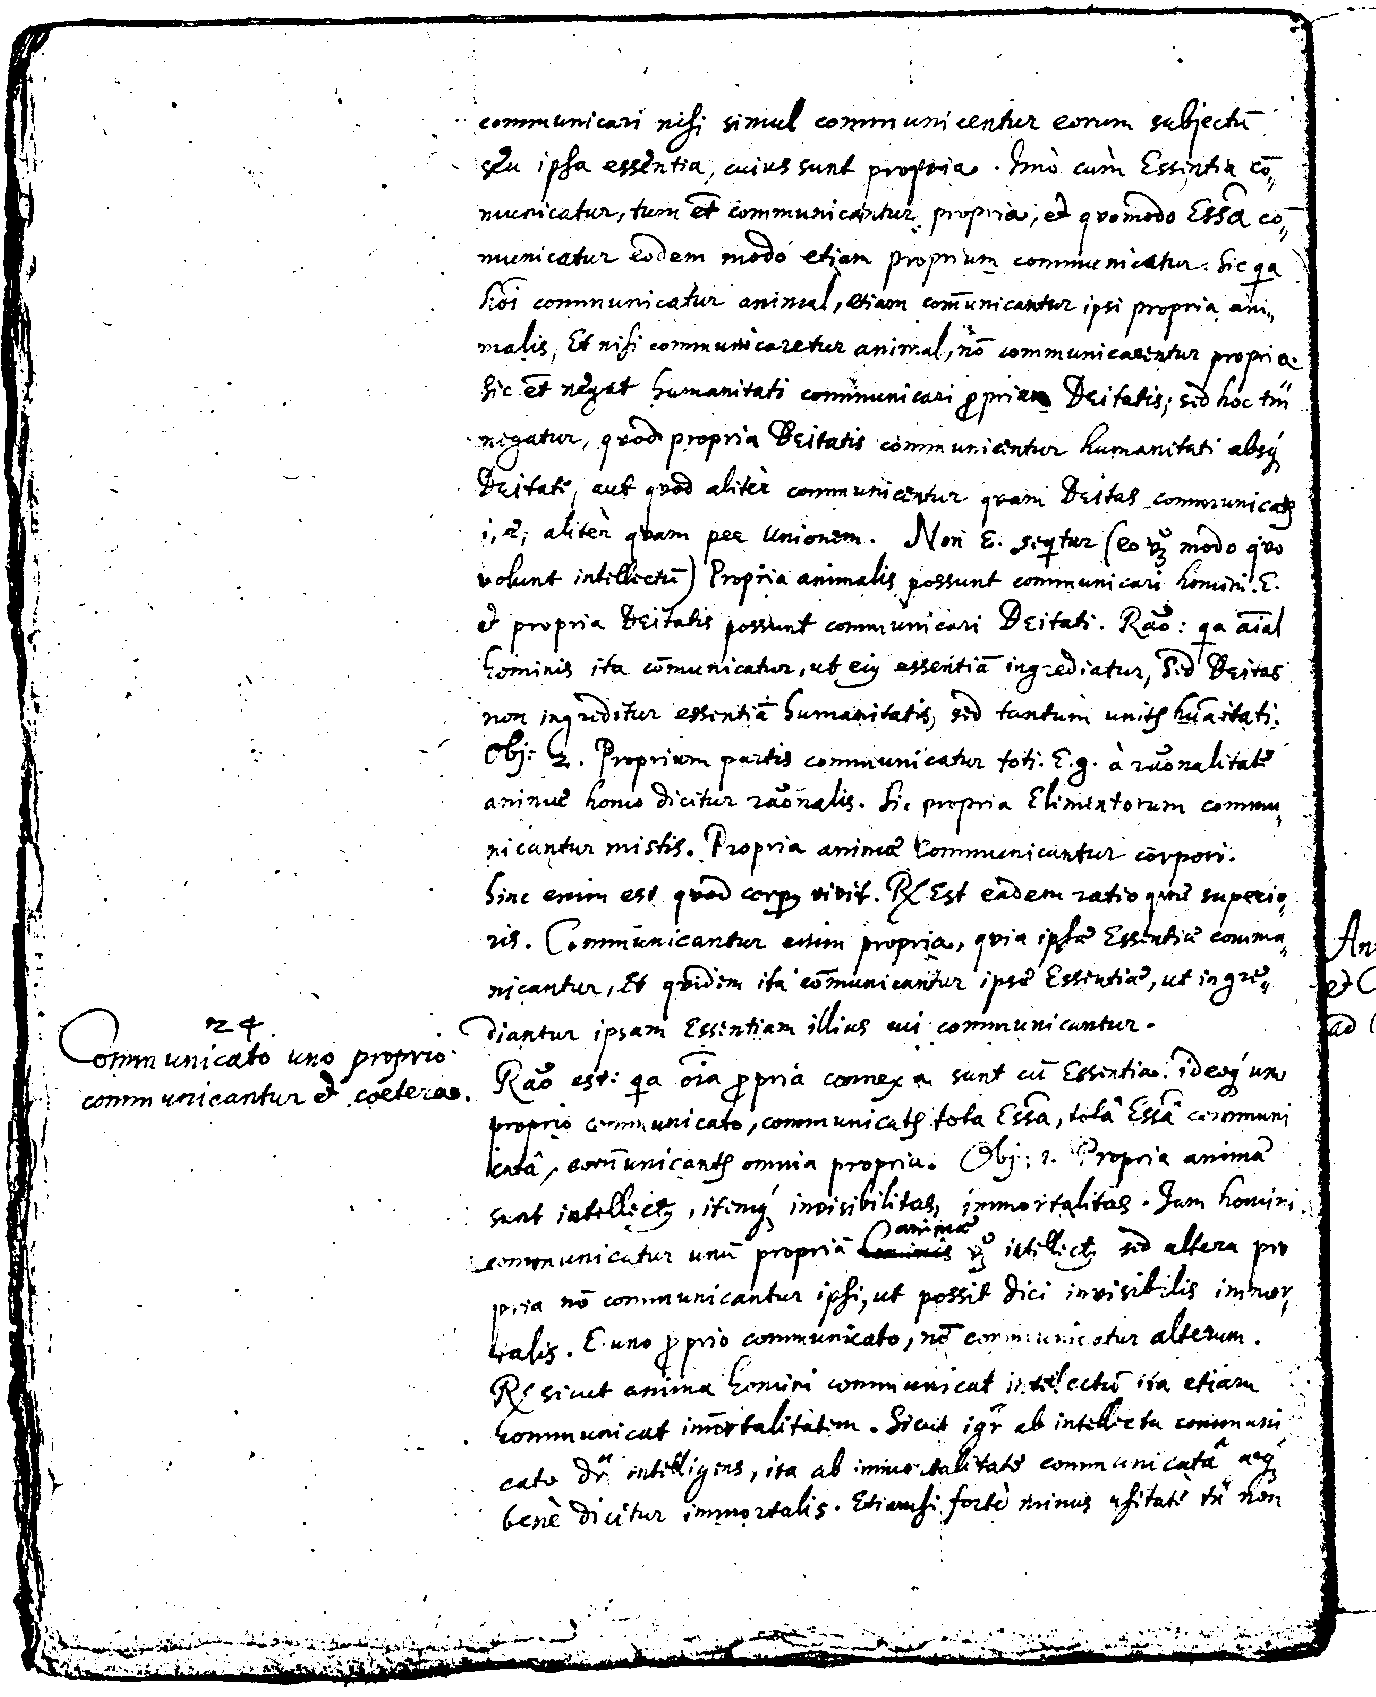 communicari nisi simul communicentur eorum subjectū
seu ipsa essentia, cuius sunt propria. Imò cùm Essentia cō„
municatur, tum et̄ communicantur propria, et quomodo Essā cō„
municatur eodem modo etiam proprium communicatur. Sic qa
hoī communicatur animal, etiam com̄unicantur ipsi propria ani„
malis, Et nisi communicaretur animal, nō communicarentur propria.
Sic et̄ negat humanitati communicari ꝓpriam Deitatis; sed hoc tm̄
negatur, quod propria Deitatis communicentur humanitati absꝗ
Deitate, aut quod alitèr communicentur quam Deitas communicatꝛ
i, e, alitèr quam per Unionem. Non E. seqtur (eo vꝫ modo quo
volunt intellectū) Propria animalis possunt communicari homini. E.
et propria Deitatis possunt communicari Deitati. Rāo: qa āial
hominis ita cōmunicatur, ut eiꝰ essentiā ingrediatur, Sed Deitas
non ingreditur essentiā humanitatis, sed tantum unitꝛ hūanitati.
Obj: 2. Proprium partis communicatur toti. E.g. à rāonalitate
animæ homo dicitur rāonalis. Sic propria Elementorum commu„
nicantur mistis. Propria animæ Communicantur corpori.
hinc enim est quod corpꝰ vivit. ℞ Est eadem ratio quæ superio„
ris. Communicantur enim propria, quia ipsæ Essentiæ commu„
nicantur, Et quidem ita cōmunicantur ipsæ Essentiæ, ut ingre„
diantur ipsam Essentiam illius cui communicantur.
24.
Communicato uno proprio
communicantur et cætera.
Rāo est: qa oīa ꝓpria connexa sunt cū Essentia. ideoꝗ uno
proprio communicato, communicatꝛ tota Essā, totâ Essâ communi
catâ, com̄unicantꝛ omnia propria. Obj: 1. Propria animæ
sunt intellectꝰ, itemꝗ invisibilitas, immortalitas. Jam homini
communicatur unū propriū animæ vꝫ intellectꝰ sed altera pro
pria nō communicantur ipsi, ut possit dici invisibilis immor„
talis. E uno ꝓprio communicato, nō communicatur alterum.
℞ sicut anima homini communicat intellectū ita etiam
communicat im̄ortalitatem. Sicut igr̄ ab intellectu communi
cato dr̄ intelligens, ita ab immortalitate communicatâ aeqꝫ
benè dicitur immortalis. Etiamsi fortè minus usitatè tn̄ non